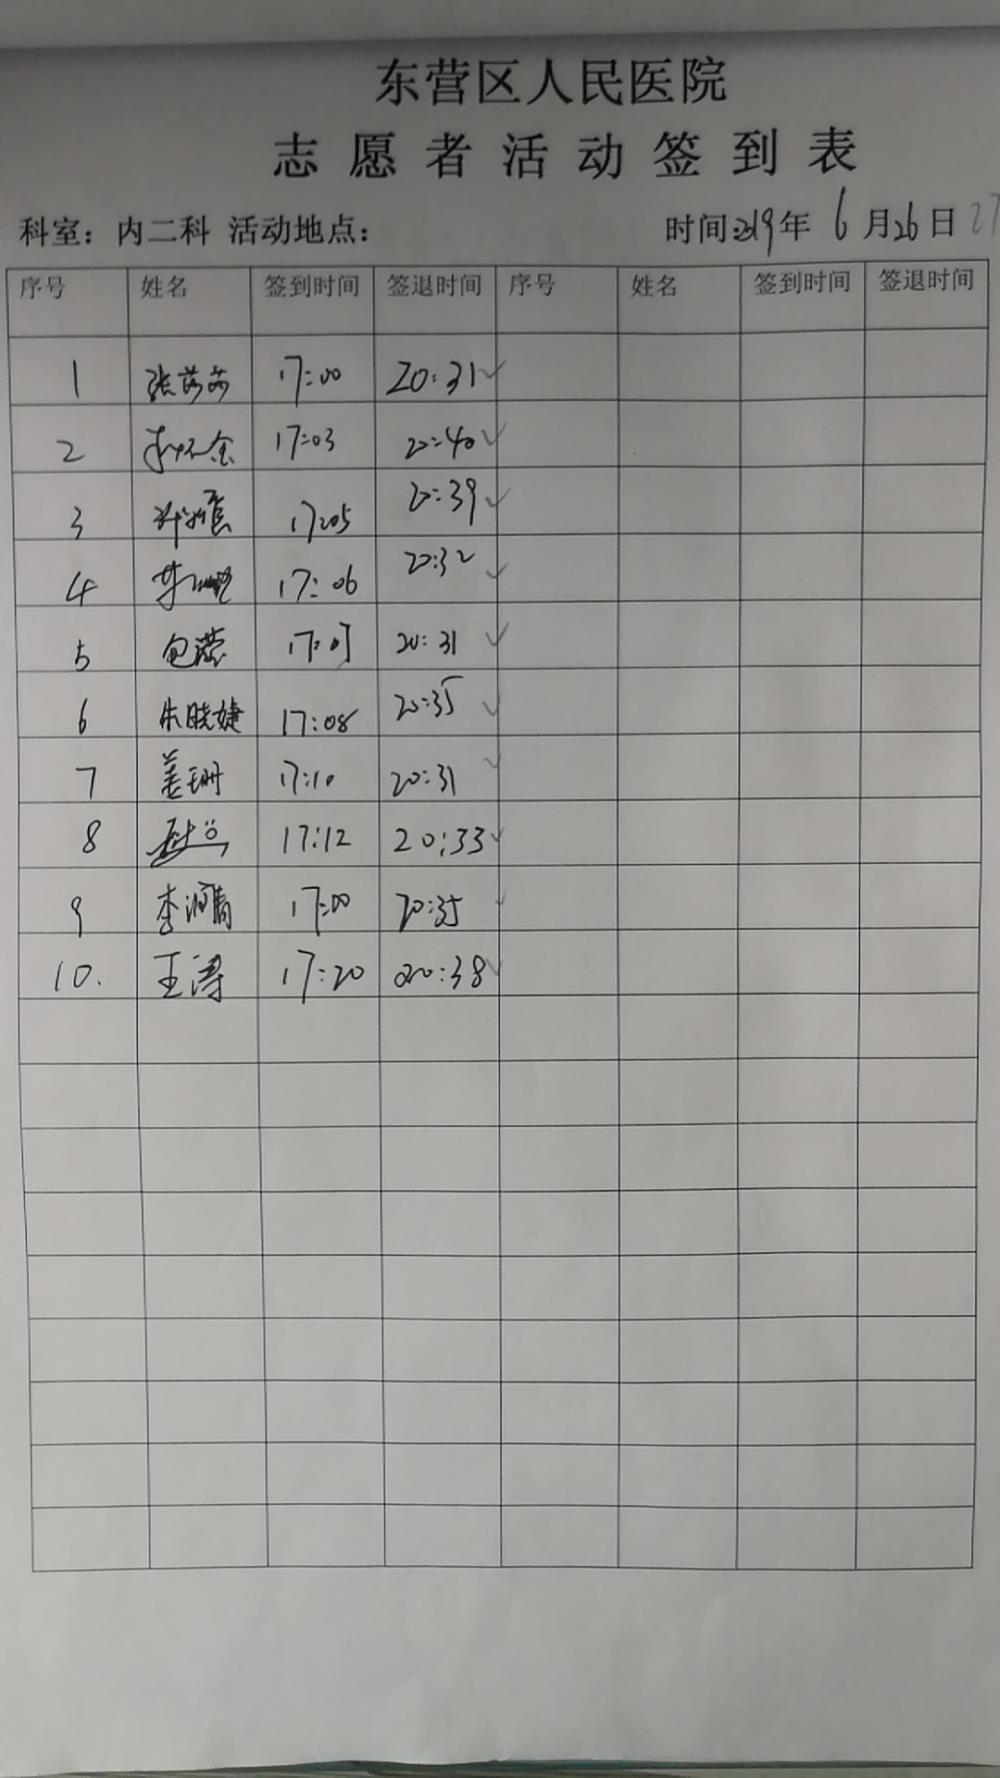 东营区人民医院
志愿者活动签到表
科室：内二科 活动地点： 时间：2019年6月26日 27
序号 姓名 签到时间 签退时间 序号 姓名 签到时间 签退时间
1 张莎莎 17:00 20:31 ✓
2 17:03 20:40 ✓
3 17:05 20:39 ✓
4 17:06 20:32 ✓
5 包莹 17:07 20:31 ✓
6 朱晓婕 17:08 20:35 ✓
7 姜珊 17:10 20:31 ✓
8 17:12 20:33 ✓
9 李润青 17:00 20:35 ✓
10. 王涛 17:20 20:38 ✓